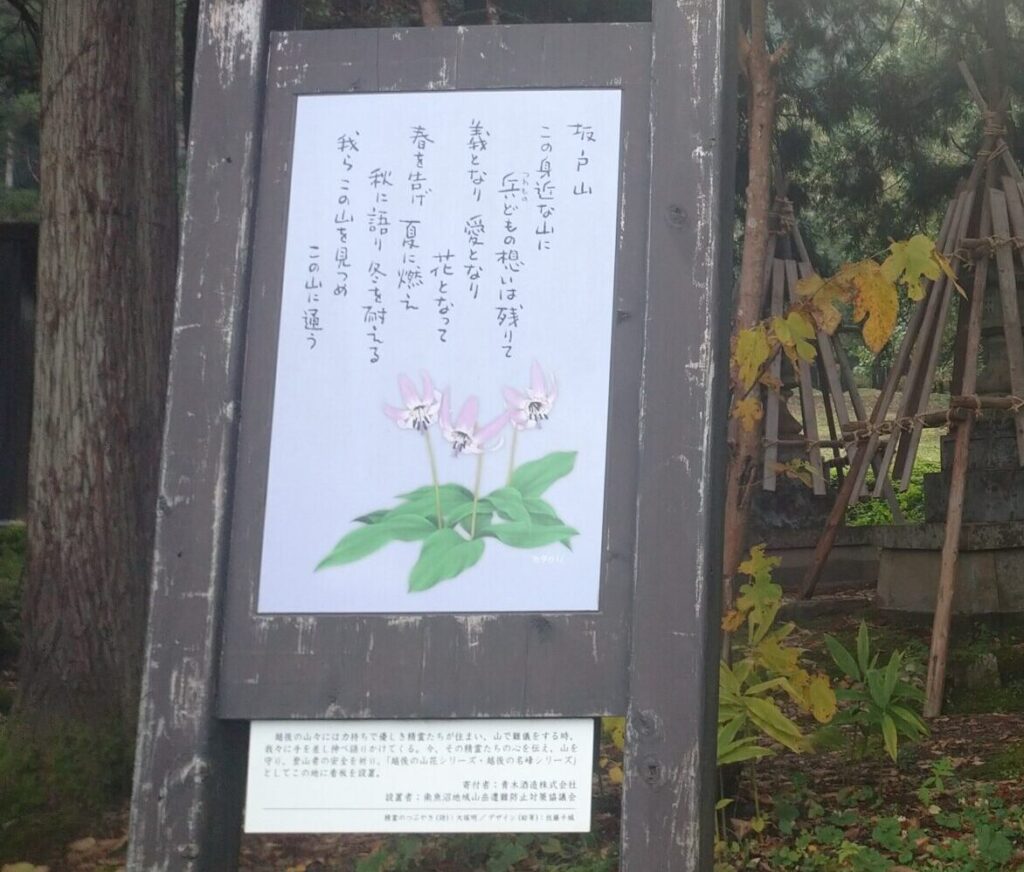 坂戸山
この身近な山に
兵どもの想いは残りて
つわもの
義となり 愛となり
花となって
春を告げ 夏に燃え
秋に語り 冬を耐える
我ら この山を見つめ
この山に通う
カタクリ
越後の山々には力持ちで優しき精霊たちが住まい、山で難儀をする時、
我々に手を差し伸べ語りかけてくる。今、その精霊たちの心を伝え、山を
守り、登山者の安全を祈り、「越後の山花シリーズ・越後の名峰シリーズ」
としてこの地に看板を設置。
寄付者：青木酒造株式会社
設置者：南魚沼地域山岳遭難防止対策協議会
精霊のつぶやき(詩)：大塚明／デザイン(絵等)：佐藤千城